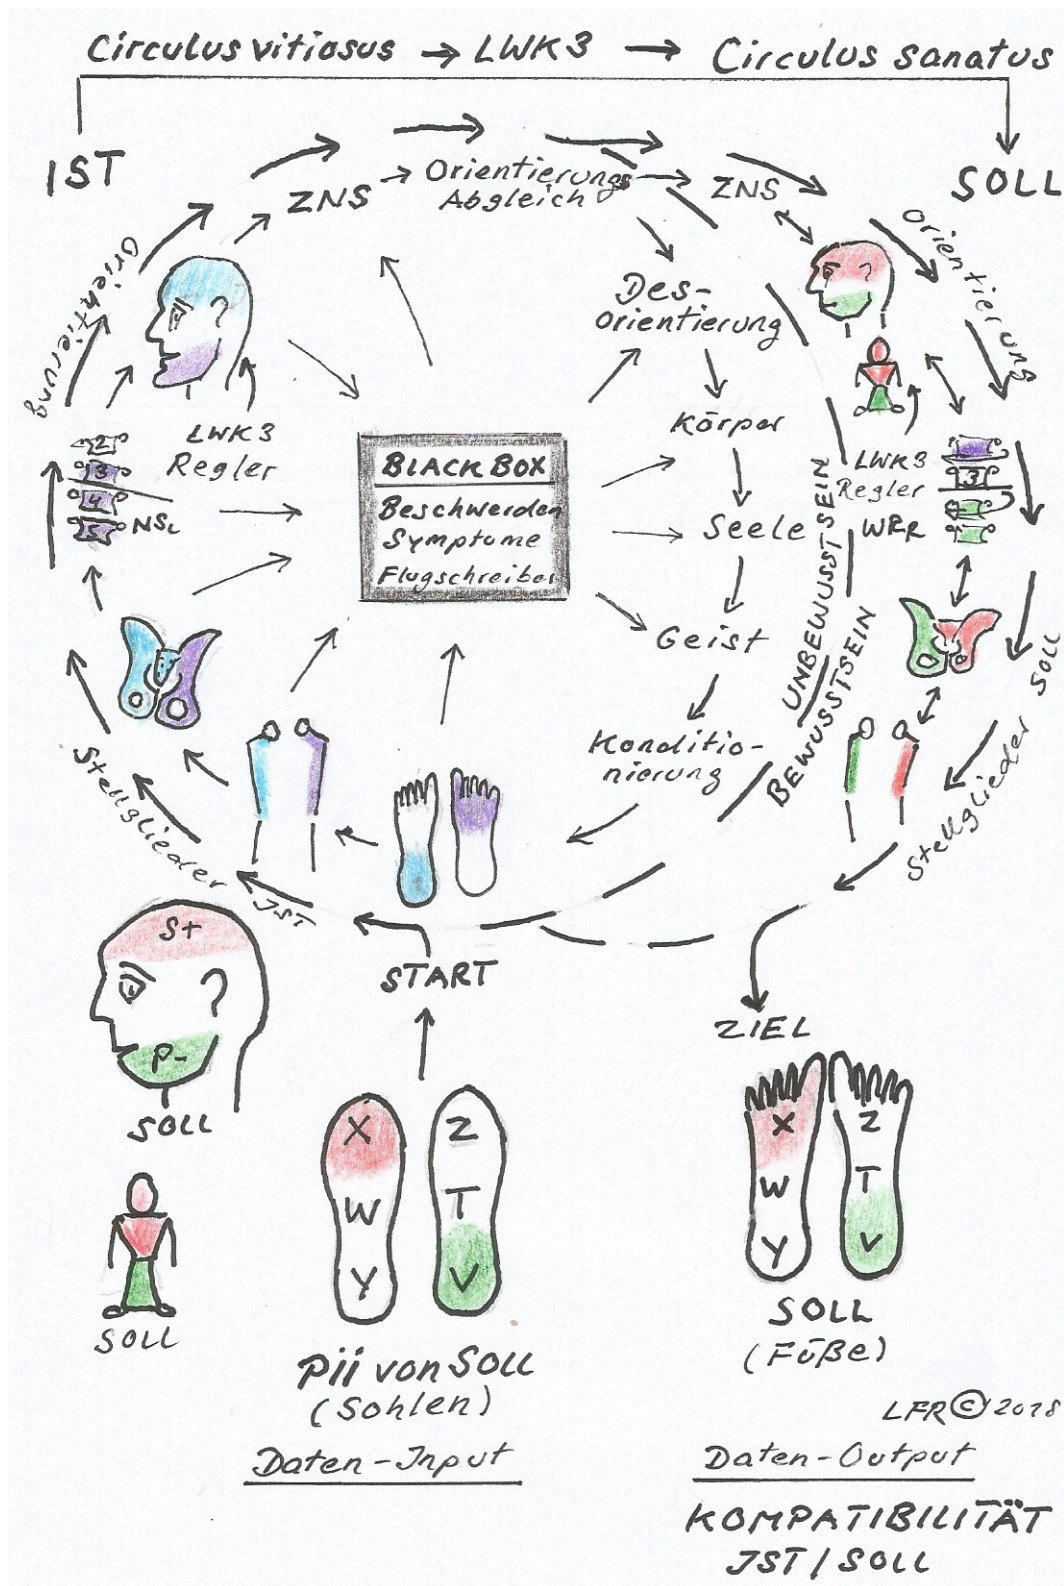 Circulus vitiosus → LWK3 → Circulus sanatus
IST
SOLL
ZNS → Orientierungs → ZNS
Abgleich
Orientierung
Orientierung
Des-
orientierung
Körper
Seele
Geist
Konditio-
nierung
LWK3
Regler
2
3
4
5
NSL
BLACK BOX
Beschwerden
Symptome
Flugschreiber
UNBEWUSSTSEIN
BEWUSSTSEIN
LWK3
Regler
3
WRR
Stellglieder
IST
SOLL
Stellglieder
START
ZIEL
S+
P-
SOLL
SOLL
X
W
Y
Z
T
V
pii von SOLL
(Sohlen)
Daten-Input
X
W
Y
Z
T
V
SOLL
(Füße)
LFR © 2018
Daten-Output
KOMPATIBILITÄT
IST / SOLL